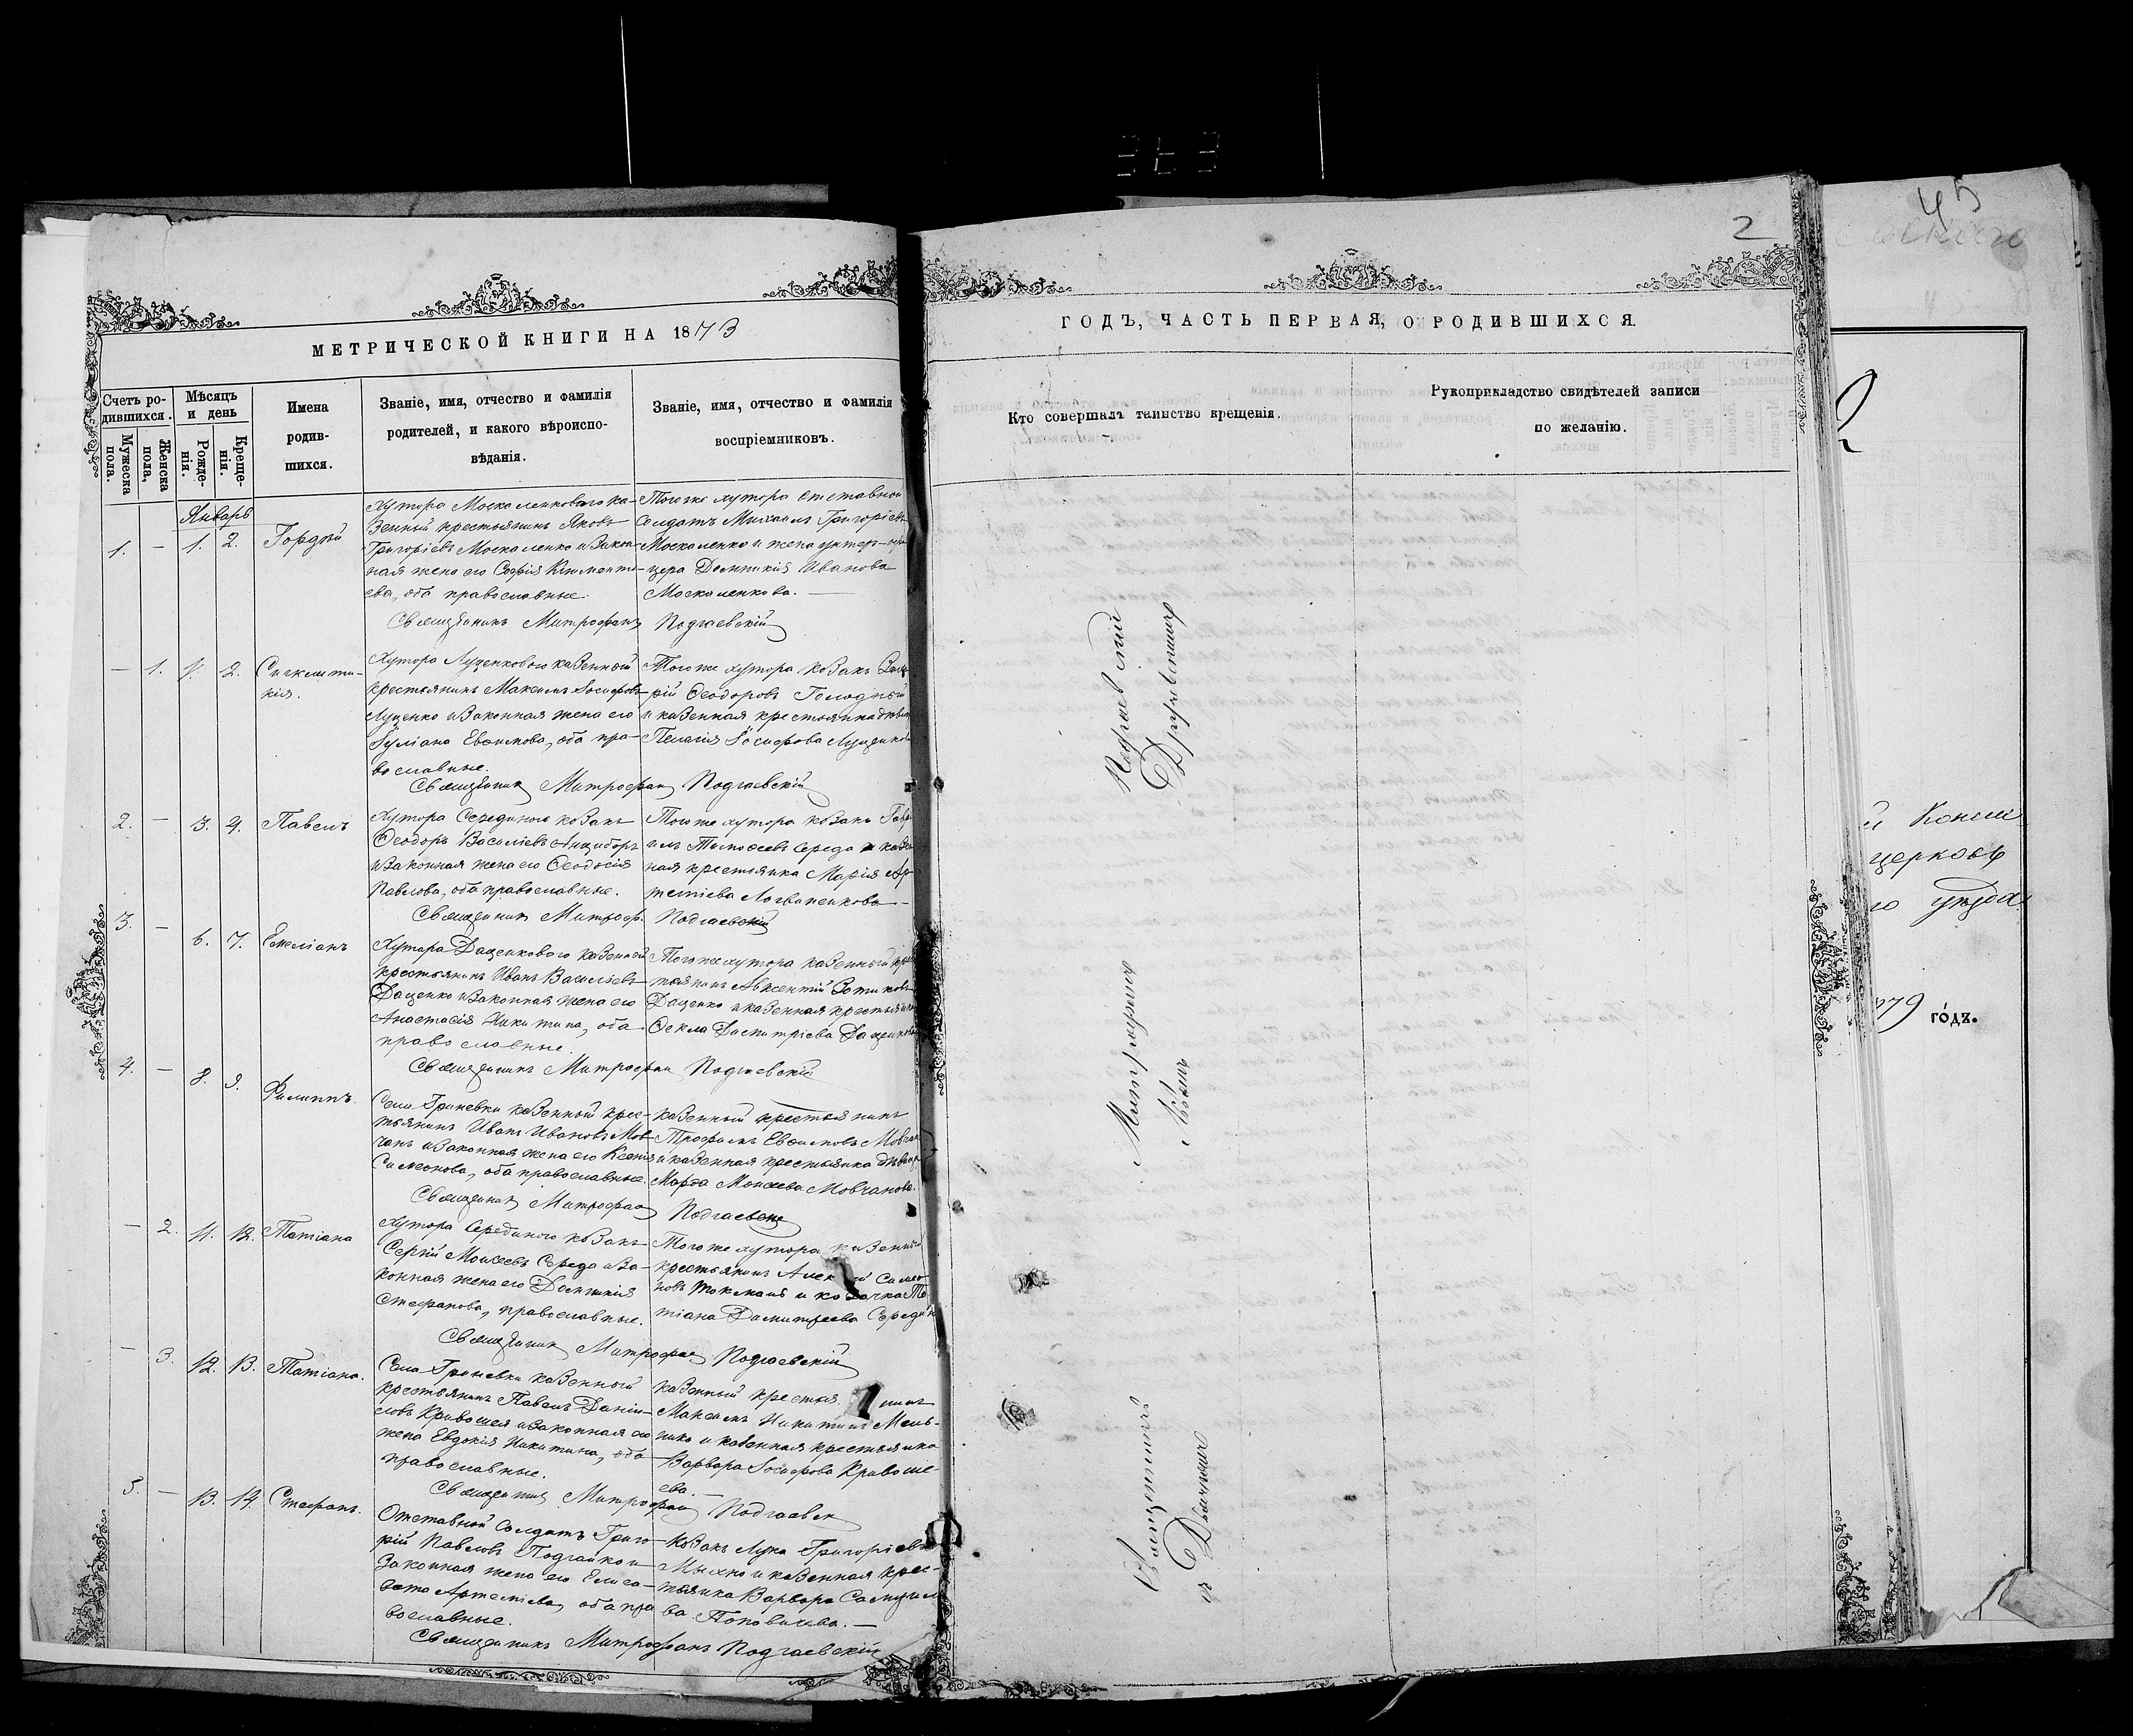 МЕТРИЧЕСКОЙ КНИГИ НА 1873
Счетъ ро-
дившихся.
Мѣсяцъ
и день
Мужеска
пола.
Женска
пола.
Рожде-
нія.
Креще-
нія.
Имена
родив-
шихся.
Званіе, имя, отчество и фамилія
родителей, и какого вѣроиспо-
вѣданія.
Званіе, имя, отчество и фамилія
воспріемниковъ.
Январь
1. — 1. 2. Гордѣй
Хутора Москаленкового ка-
зенный крестьянинъ Яковъ
Григоріевъ Москаленко и закон-
ная жена его Софія Климентi-
ева, оба православные.
Тогоже хутора отставной
солдатъ Михаилъ Григоріевъ
Москаленко и жена унтеръ-офи
цера Домникія Иванова
Москаленкова. —
Священникъ Митрофанъ Подгаевскій
— 1. 1. 2. Синклити-
кія.
Хутора Луценкового казенный
крестьянинъ Максимъ Іосифовъ
Луценко и законная жена его
Іуліана Евѳимова, оба пра-
вославные.
Тогоже хутора козакъ
рій Ѳеодоровъ Голодный
и казенная крестьянка дѣвица
Пелагія Іосифова Луценкова
Священникъ Митрофанъ Подгаевскій
2. — 3. 4. Павелъ
Хутора Серединого козакъ
Ѳеодоръ Василіевъ Анциборъ
и законная жена его Ѳеодосія
Павлова, оба православные.
Тогоже хутора козакъ Гавр
илъ Тимоѳеевъ Середа и казен
ная крестьянка Марія Ар
теміева Логвиненкова —
Священникъ Митроф. Подгаевскій
3. — 6. 7. Емеліанъ
Хутора Даценкового казенный
крестьянинъ Иванъ Васильевъ
Даценко и законная жена его
Анастасія Никитина, оба
православные.
Тогоже хутора казенный крес
тьянинъ Авксентій Зотиковъ
Даценко и казенная крестьянка
Ѳекла Димитріева Даценкова
Священникъ Митрофанъ Подгаевскій
4. — 8. 9. Филиппъ.
Села Гриневки казенный крес-
тьянинъ Иванъ Ивановъ Мов-
чанъ и законная жена его Ксенія
Симеонова, оба православные.
казенный крестьянинъ
Трофимъ Евѳимовъ Мовчан
и казенная крестьянка дѣвица
Марѳа Моисеева Мовчанова.
Священникъ Митрофанъ Подгаевскій
— 2. 11. 12. Татіана
Хутора Серединого козакъ
Сергій Моисеевъ Середа и за-
конная жена его Домникія
Стефанова, православные.
Тогоже хутора казенный
крестьянинъ Алек й Симео
новъ Токмань и козачка Та
тіана Димитріева Середин
Священникъ Митрофанъ Подгаевскій
— 3. 12. 13. Татіана.
Села Гриневки казенный
крестьянинъ Павелъ Даніи-
ловъ Кривошея и законная его
жена Евдокія Никитина, оба
православные.
казенный крестья нинъ
Максимъ Никитинъ Мель-
никъ и казенная крестьянка
Варвара Іосифова Кривоше-
ева. —
Священникъ Митрофанъ Подгаевск
5. — 13. 14. Стефанъ.
Отставной солдатъ Григо-
рій Павловъ Подгайко и
законная жена его Елиса-
вета Артеміева, оба пра
вославные.
Козакъ Лука Григоріевъ
и казенная крес-
тьянка Варвара Самуило
ва Поповичева. —
Священникъ Митрофанъ Подгаевскій
2
ГОДЪ, ЧАСТЬ ПЕРВАЯ, О РОДИВШИХСЯ.
Кто совершалъ таинство крещенія.
Рукоприкладство свидѣтелей записи
по желанію.
Священникъ Митрофанъ Подгаевскій
45
церковь
годъ.